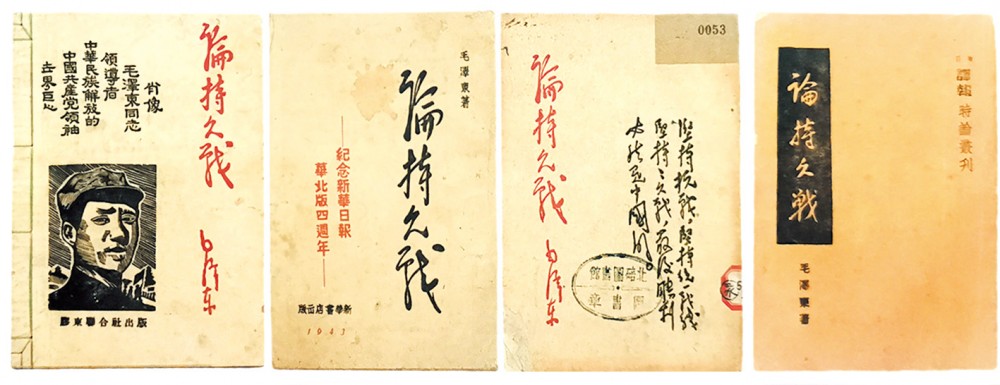 論持久戰
毛澤東
肖像
毛澤東同志
領導者
中華民族解放的
中國共產党領袖
膠東聯合社出版
毛澤東著
論持久戰
紀念新華日報
華北版四週年
新華書店出版
1943
0053
堅持抗戰,堅持統一戰線,
堅持持久戰,最後勝利
必然是中國的。
論持久戰
毛澤東
北碚圖書館
圖書章
譯報時論叢刊
論持久戰
毛澤東著